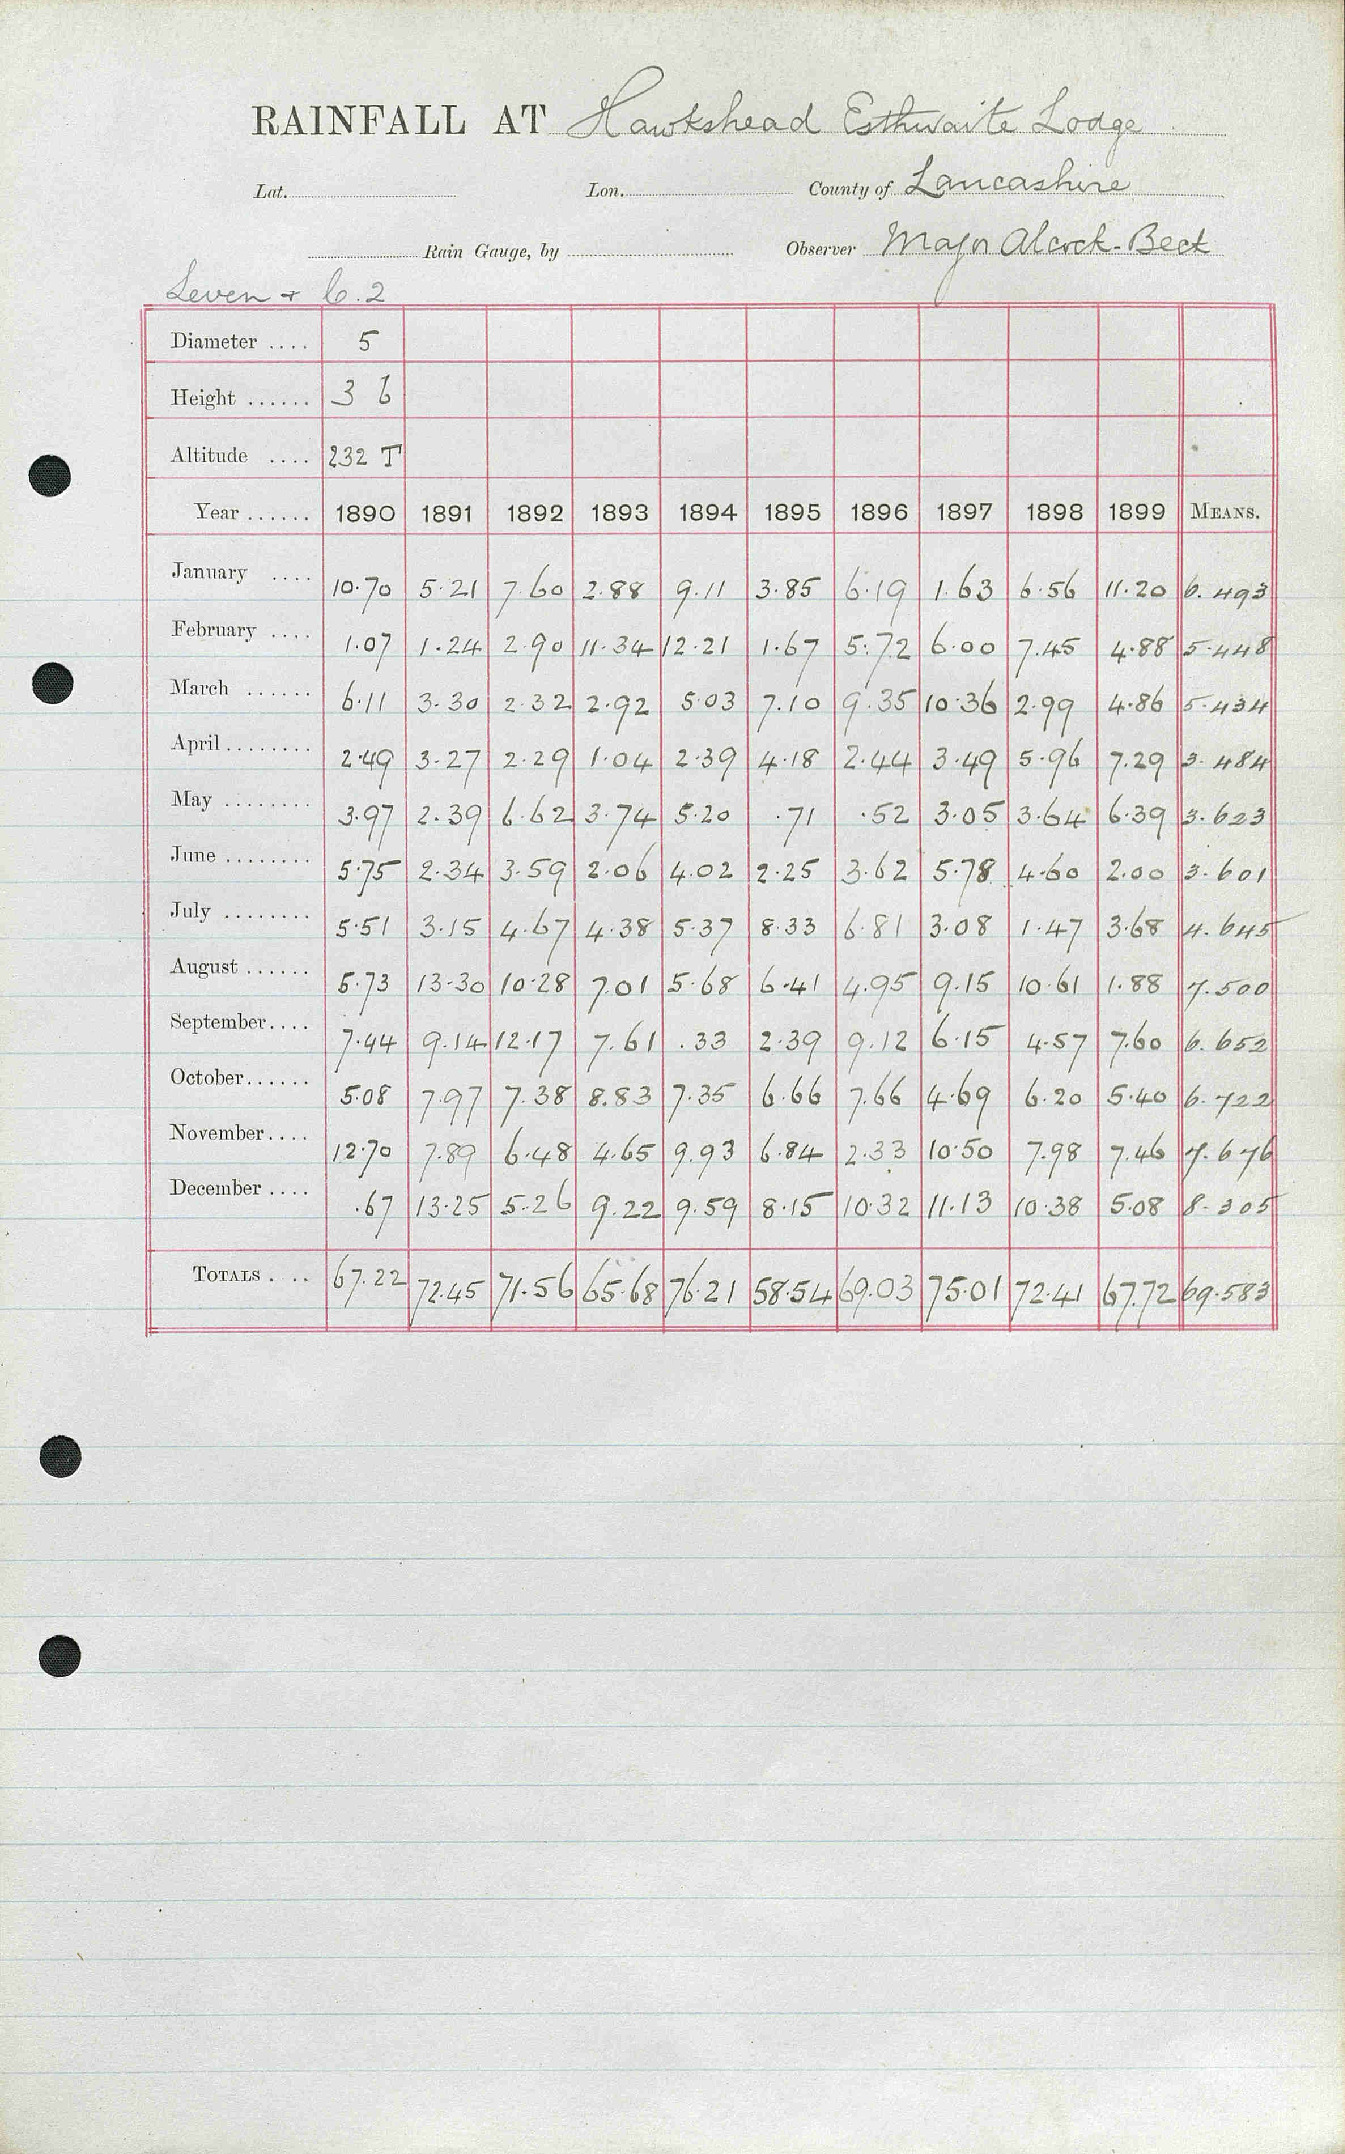 RAINFALL AT Hawkshead Esthwaite Lodge
Lat. Lon. County of Lancashire
Rain Gauge, by Observer Major Alcock-Beck
Leven & C.2
Diameter .... 5
Height ...... 3 6
Altitude .... 232 T
Year ...... 1890 1891 1892 1893 1894 1895 1896 1897 1898 1899 MEANS.
January .... 10.70 5.21 7.60 2.88 9.11 3.85 6.19 1.63 6.56 11.20 6.493
February .... 1.07 1.24 2.90 11.34 12.21 1.67 5.72 6.00 7.45 4.88 5.448
March ...... 6.11 3.30 2.32 2.92 5.03 7.10 9.35 10.36 2.99 4.86 5.434
April ........ 2.49 3.27 2.29 1.04 2.39 4.18 2.44 3.49 5.96 7.29 3.484
May ........ 3.97 2.39 6.62 3.74 5.20 .71 .52 3.05 3.64 6.39 3.623
June ........ 5.75 2.34 3.59 2.06 4.02 2.25 3.62 5.78 4.60 2.00 3.601
July ........ 5.51 3.15 4.67 4.38 5.37 8.33 6.81 3.08 1.47 3.68 4.645
August ...... 5.73 13.30 10.28 7.01 5.68 6.41 4.95 9.15 10.61 1.88 7.500
September.... 7.44 9.14 12.17 7.61 .33 2.39 9.12 6.15 4.57 7.60 6.652
October...... 5.08 7.97 7.38 8.83 7.35 6.66 7.66 4.69 6.20 5.40 6.722
November.... 12.70 7.89 6.48 4.65 9.93 6.84 2.33 10.50 7.98 7.46 7.676
December .... .67 13.25 5.26 9.22 9.59 8.15 10.32 11.13 10.38 5.08 8.305
TOTALS . .. 67.22 72.45 71.56 65.68 76.21 58.54 69.03 75.01 72.41 67.72 69.583